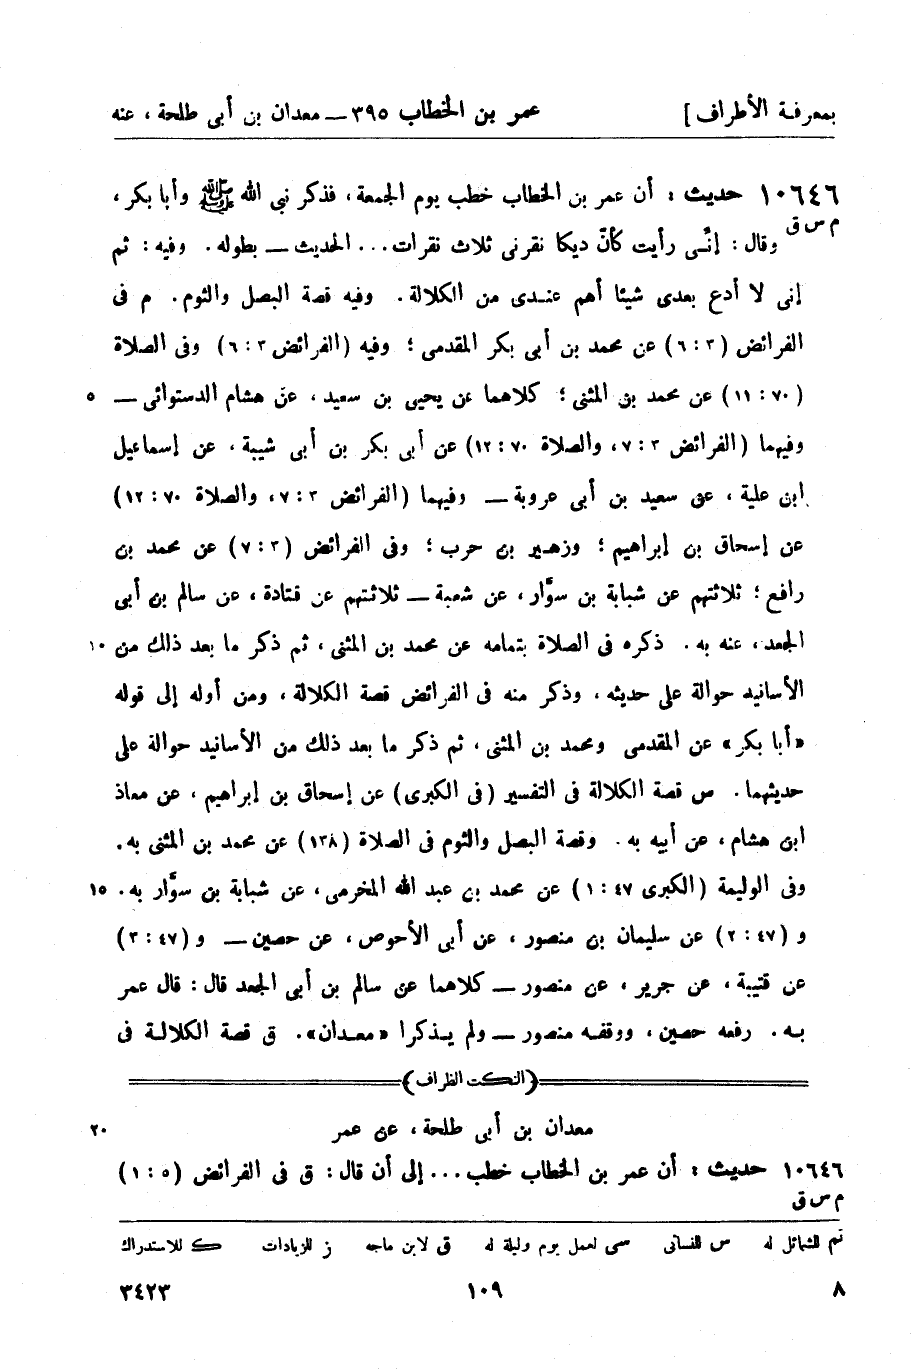 بمعرفة الأطراف] عمر بن الخطاب ٣٩٥ ــ معدان بن أبى طلحة ، عنه
١٠٦٤٦ حديث : أن عمر بن الخطاب خطب يوم الجمعة ، فذكر نبى الله ﷺ وأبا بكر ،
م س ق وقال : إنَّى رأيت كأنّ ديكا نقرنى ثلاث نقرات ... الحديث ــ بطوله . وفيه : ثم
إنى لا أدع بعدى شيئا أهم عنـدى من الكلالة . وفيه قصة البصل والثوم . م فى
الفرائض (٣ : ٦) عن محمد بن أبى بكر المقدمى ؛ وفيه (الفرائض ٣ : ٦) وفى الصلاة
(٧٠ : ١١) عن محمد بن المثنى ؛ كلاهما عن يحيى بن سعيد ، عن هشام الدستوائى ــ ٥
وفيهما (الفرائض ٣ : ٧ ، والصلاة ٧٠ : ١٢) عن أبى بكر بن أبى شيبة ، عن إسماعيل
ابن علية ، عن سعيد بن أبى عروبة ــ وفيهما (الفرائض ٣ : ٧ ، والصلاة ٧٠ : ١٢)
عن إسحاق بن إبراهيم ؛ وزهـير بن حرب ؛ وفى الفرائض (٣ : ٧) عن محمد بن
رافع ؛ ثلاثتهم عن شبابة بن سوَّار ، عن شعبة ــ ثلاثتهم عن قتادة ، عن سالم بن أبى
الجعد ، عنه به . ذكره فى الصلاة بتمامه عن محمد بن المثنى ، ثم ذكر ما بعد ذلك من ١٠
الأسانيد حوالة على حديثه ، وذكر منه فى الفرائض قصة الكلالة ، ومن أوله إلى قوله
«أبا بكر» عن المقدمى ومحمد بن المثنى ، ثم ذكر ما بعد ذلك من الأسانيد حوالة على
حديثهما . س قصة الكلالة فى التفسير (فى الكبرى) عن إسحاق بن إبراهيم ، عن معاذ
ابن هشام ، عن أبيه به . وقصة البصل والثوم فى الصلاة (١٣٨) عن محمد بن المثنى به .
وفى الوليمة (الكبرى ٤٧ : ١) عن محمد بن عبد الله المخرمى ، عن شبابة بن سوَّار به . ١٥
و (٤٧ : ٢) عن سليمان بن منصور ، عن أبى الأحوص ، عن حصين ــ و (٤٧ : ٣)
عن قتيبة ، عن جرير ، عن منصور ــ كلاهما عن سالم بن أبى الجعد قال : قال عمر
بـه . رفعه حصين ، ووقفـه منصور ــ ولم يـذكرا «معـدان» . ق قصة الكلالـة فى
(النكت الظراف)
معدان بن أبى طلحة ، عن عمر ٢٠
١٠٦٤٦ حديث : أن عمر بن الخطاب خطب ... إلى أن قال : ق فى الفرائض (٥ : ١)
م س ق
تم للشمائل له س للنسائى سى لعمل يوم وليلة له ق لابن ماجه ز للزيادات ك للاستدراك
٨ ١٠٩ ٣٤٢٣